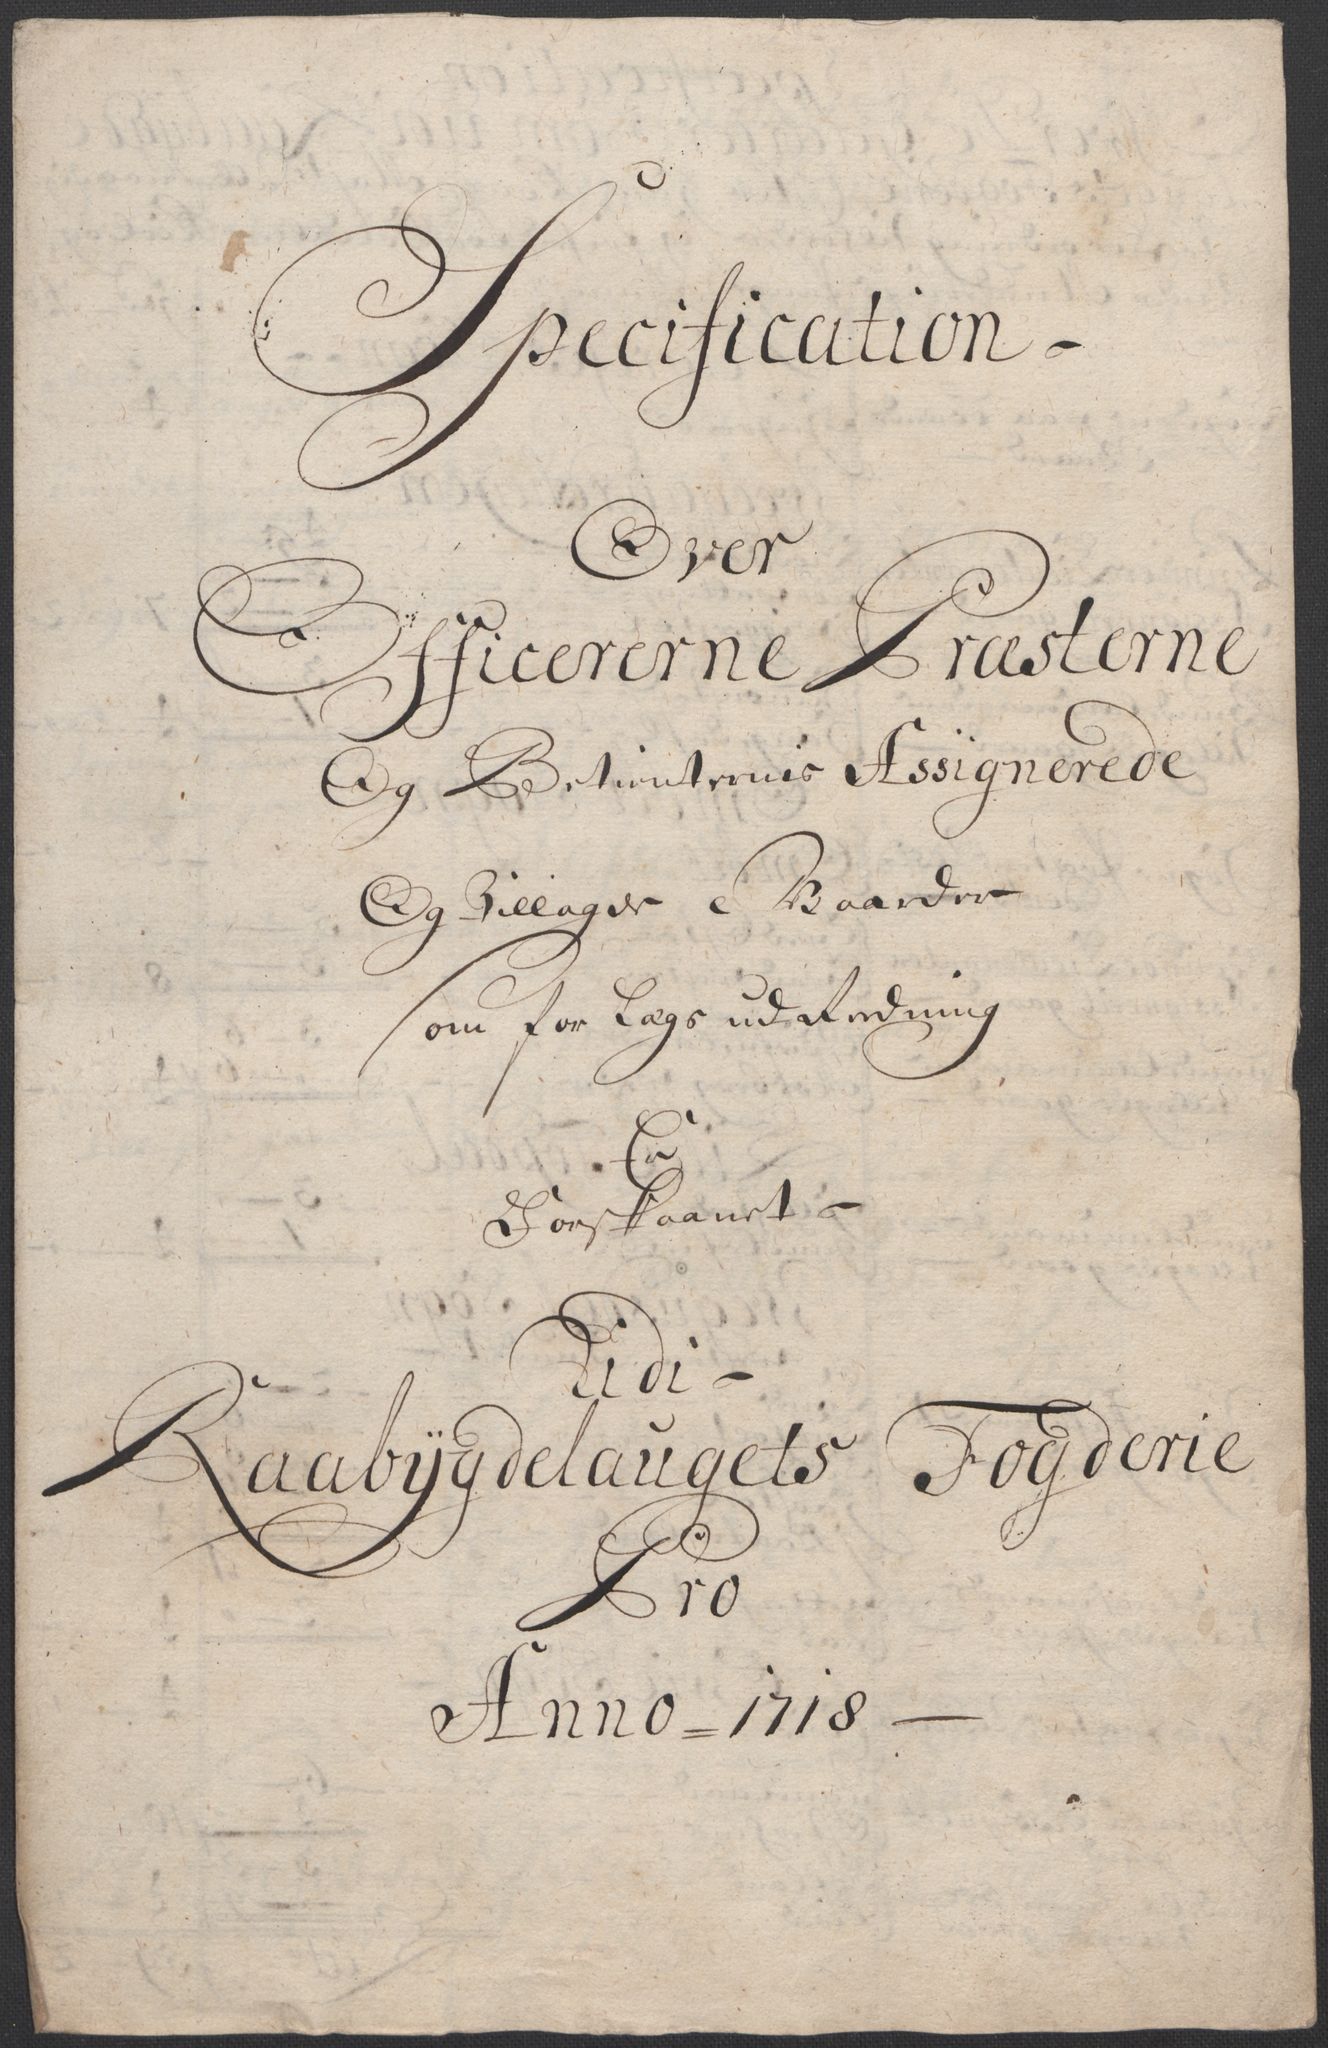 Specification
Over
Officererne Præsterne
Og Betienternis Assignerede
Og Tillagde Gaarder
som for Lægs udRedning
Er
Forskaanet
Udi
Raabÿgdelaugets Fogderie
Pro
Anno = 1718